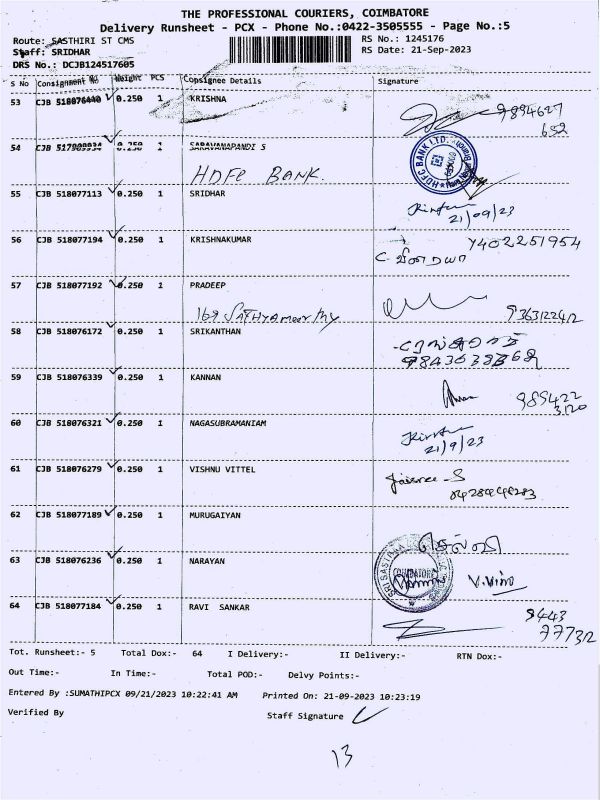 THE PROFESSIONAL COURIERS, COIMBATORE
Delivery Runsheet - PCX - Phone No.:0422-3505555 - Page No.:5
Route: SASTHIRI ST CMS
RS No.: 1245176
Staff: SRIDHAR
RS Date: 21-Sep-2023
DRS No.: DCJB124517605
S No Consignment No Weight PCS Consignee Details Signature
53 CJB 518076440 0.250 1 KRISHNA
9894627
652
54 CJB 517909934 0.250 1 SARAVANAPANDI S
HDFC BANK.
HDFC BANK LTD.
55 CJB 518077113 0.250 1 SRIDHAR
21/09/23
56 CJB 518077194 0.250 1 KRISHNAKUMAR
7402251954
57 CJB 518077192 0.250 1 PRADEEP
9363122412
58 CJB 518076172 0.250 1 SRIKANTHAN
59 CJB 518076339 0.250 1 KANNAN
989422
3120
60 CJB 518076321 0.250 1 NAGASUBRAMANIAM
21/9/23
61 CJB 518076279 0.250 1 VISHNU VITTEL
62 CJB 518077189 0.250 1 MURUGAIYAN
63 CJB 518076236 0.250 1 NARAYAN
COIMBATORE
64 CJB 518077184 0.250 1 RAVI SANKAR
9443
77312
Tot. Runsheet:- 5 Total Dox:- 64 I Delivery:- II Delivery:- RTN Dox:-
Out Time:- In Time:- Total POD:- Delvy Points:-
Entered By :SUMATHIPCX 09/21/2023 10:22:41 AM Printed On: 21-09-2023 10:23:19
Verified By Staff Signature
13